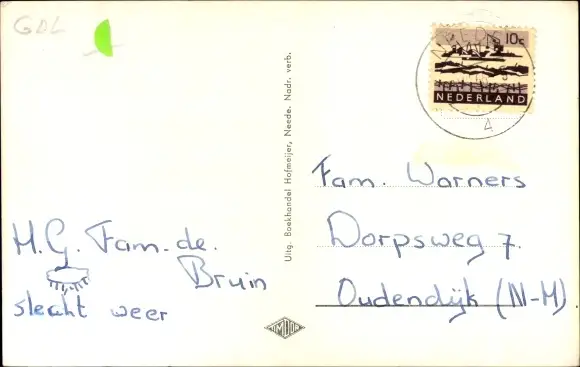 GDL
10c
NEDERLAND
4
Uitg. Boekhandel Hofmeijer, Neede. Nadr. verb.
Fam. Warners
Dorpsweg 7.
Oudendijk (N-H).
H.G. Fam. de.
Bruin
slecht weer